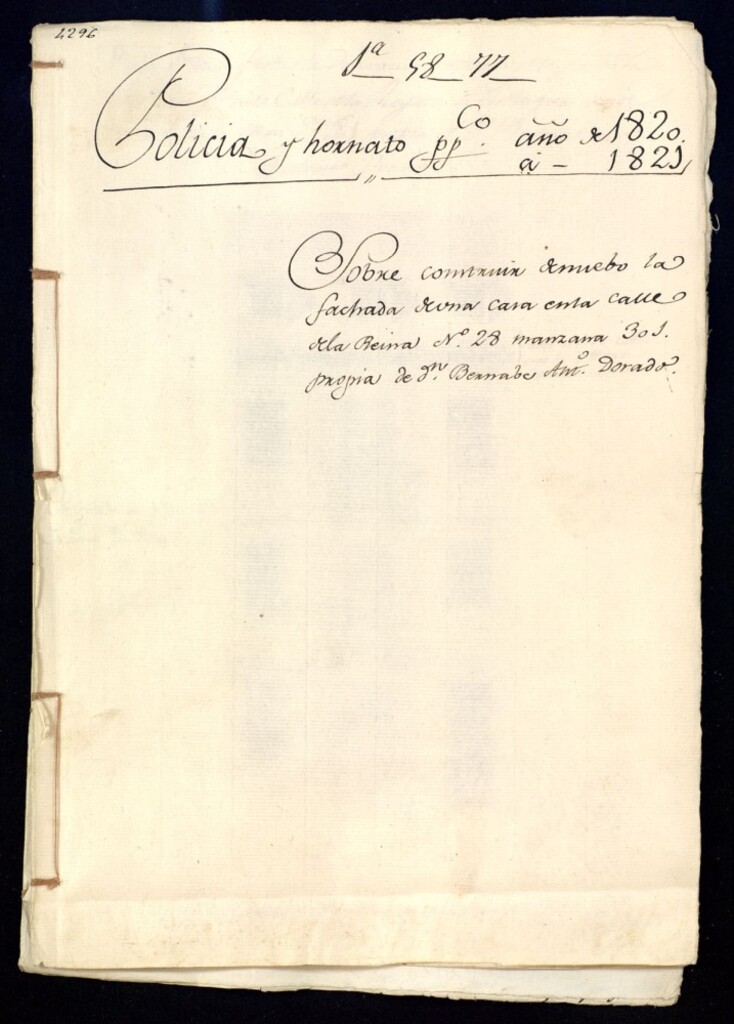 4296
1ª 58 77
Policia y hornato ppCo. año de 1820.
a - 1821
Sobre construir denuebo la
fachada deuna casa enla Calle
dela Reina Nº. 28 manzana 301.
propia de Dn. Bernabe Antº. Dorado.